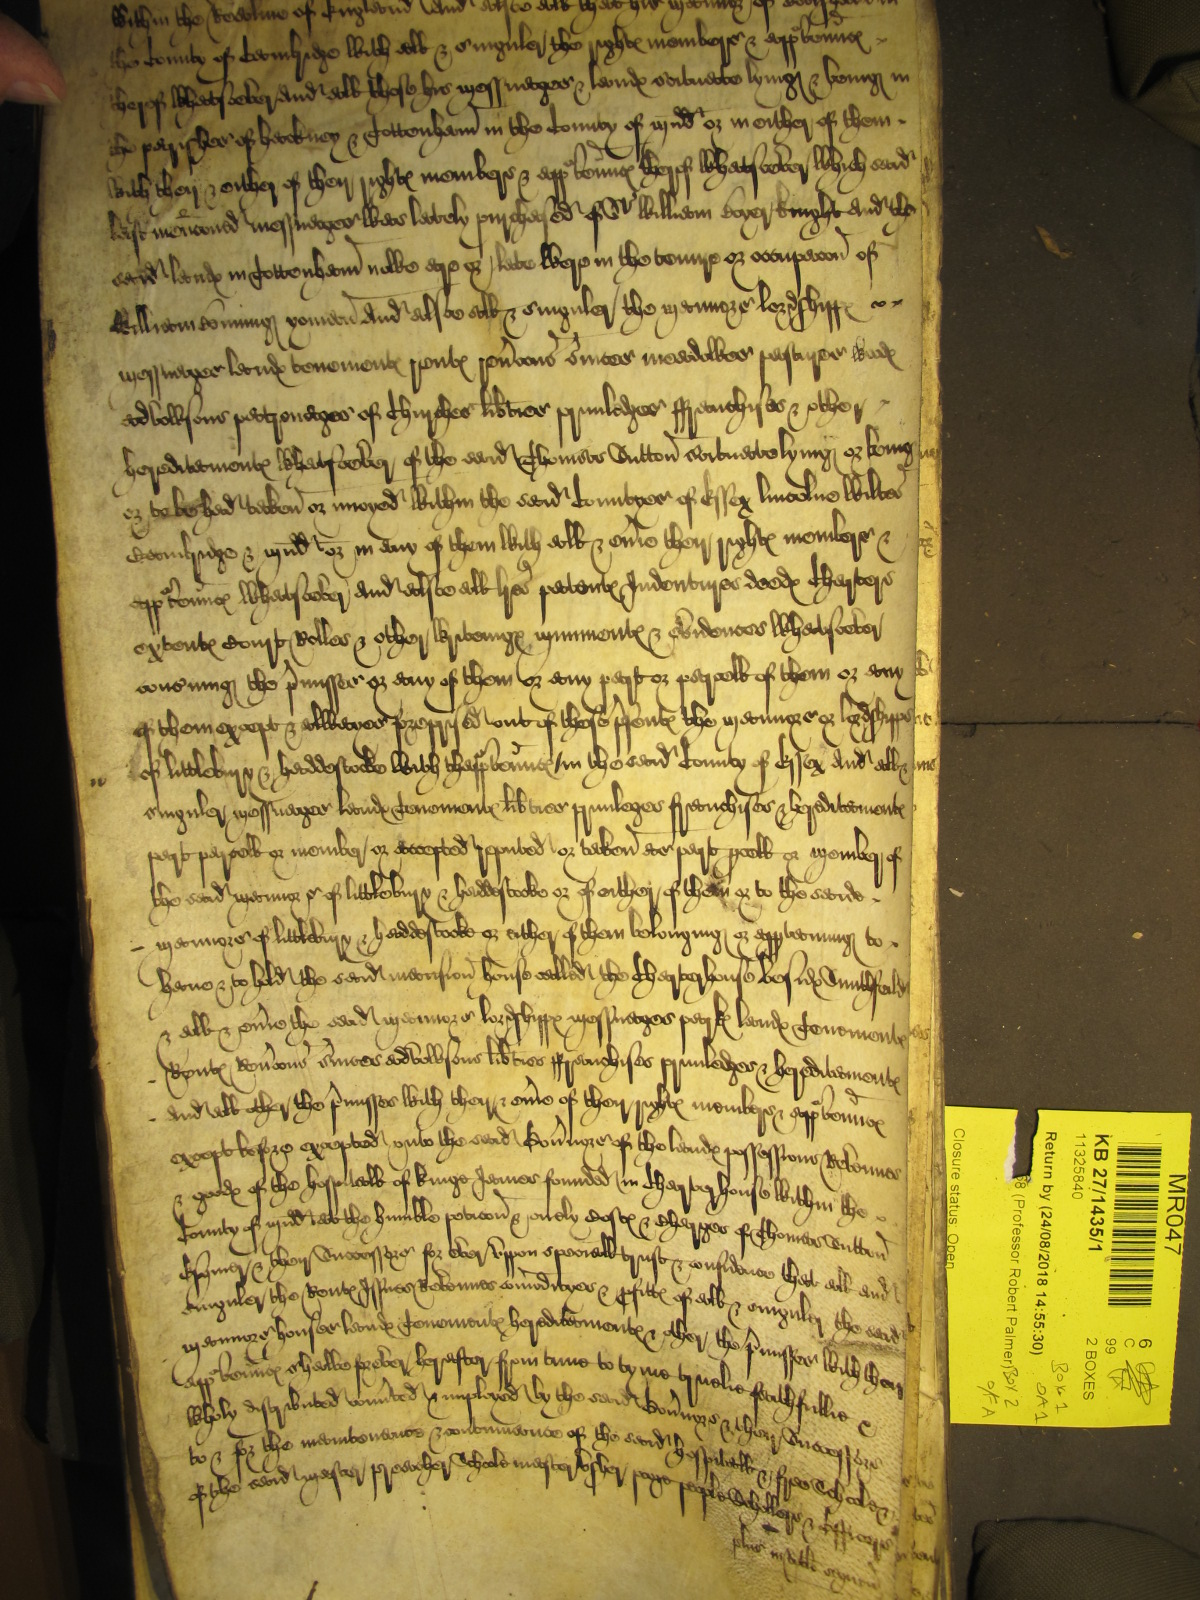 within the Realme of England And alsoe all that his mannor of
the County of Cambridge with all & singuler the rights members & appᵗennᶜᵉˢ
therof whatsoever And all those his messuages & lands scituate lying & being in
the parishes of hackney & Tottenham in the County of midd or in either of them
with their & either of their rights members & appᵗennᶜᵉˢ therof whatsoever which said
last menconed messuages was lately purchased of Sr William Bowyer knight and the
said lands in Tottenham nowe are or late were in the tenure or occupacon of
William Benning yoman And alsoe all & singuler the mannors lordshipps
messuages lands tenements rents revcons services meadowes pastures woods
advowsons patronages of Churches libties priviledges ffranchises & other
hereditaments whatsoever of the said Thomas Sutton scituate lying or being
or to be had taken or inioyed within the said Countyes of Essex lincolne Wiltes
Cambridge & midd or in any of them with all & evie their rights members &
appᵗennᶜᵉˢ whatsoever And alsoe all lrēs patents Indentures deeds Charters
extents Court Rolles & other writeings mynments & Evidences whatsoever
concning the pmisses or any of them or any part or parcell of them or any
of them except & allwaies forepised out of these psents the mannors or lordshipps
of littlebury & haddestocke with thappᵗennᶜᵉˢ in the said County of Essex And all &
singuler messuages lands Tenements libties privileges franchises & hereditaments
part parcell or member or accepted reputed or taken as part pcell or member of
the said mannors of littlebury & haddestocke or of either of them or to the saide
mannors of littlebury & haddestocke or either of them belonging or apptaining to
have & to hold the said mansion house called the Charterhouse besids Smithfeild
& all & evie the said mannors lordshipps messuages parks lands Tenements
Rents Revcons Svices advowsons libties ffranchises priviledges & hereditaments
And all other the pmisses with their & evie of their rights members & appᵗennᶜᵉˢ
except before excepted unto the said Govnors of the lands possessions Revenues
& goods of the hospitall of kinge James founded in Charterhouse within the
County of midd at the humble peticon & onely Costs & Charges of Thomas Sutton
Esquier & their Successors for ever Vppon speciall trust & confidence that all and
singuler the Rents Issues Revenues comodityes & pfitts of all & singuler the said
mannors houses lands Tenements hereditaments & other the pmisses with their
appᵗennᶜᵉˢ shalbe forever herafter from time to tyme truelie faithfullie &
wholy distributed convted & imployed by the said Govnors & their Successors
to & for the maintenance & continuance of the said hospitall & free Schoole &
of the said master preacher Schoole master Vsher poore people Schollers & Officers
MR047
KB 27/1435/1
11325840
Return by (24/08/2018 14:55:30)
(Professor Robert Palmer)
Closure status: Open
6
C
99
2 BOXES
Box 1
OA 1
Box 2